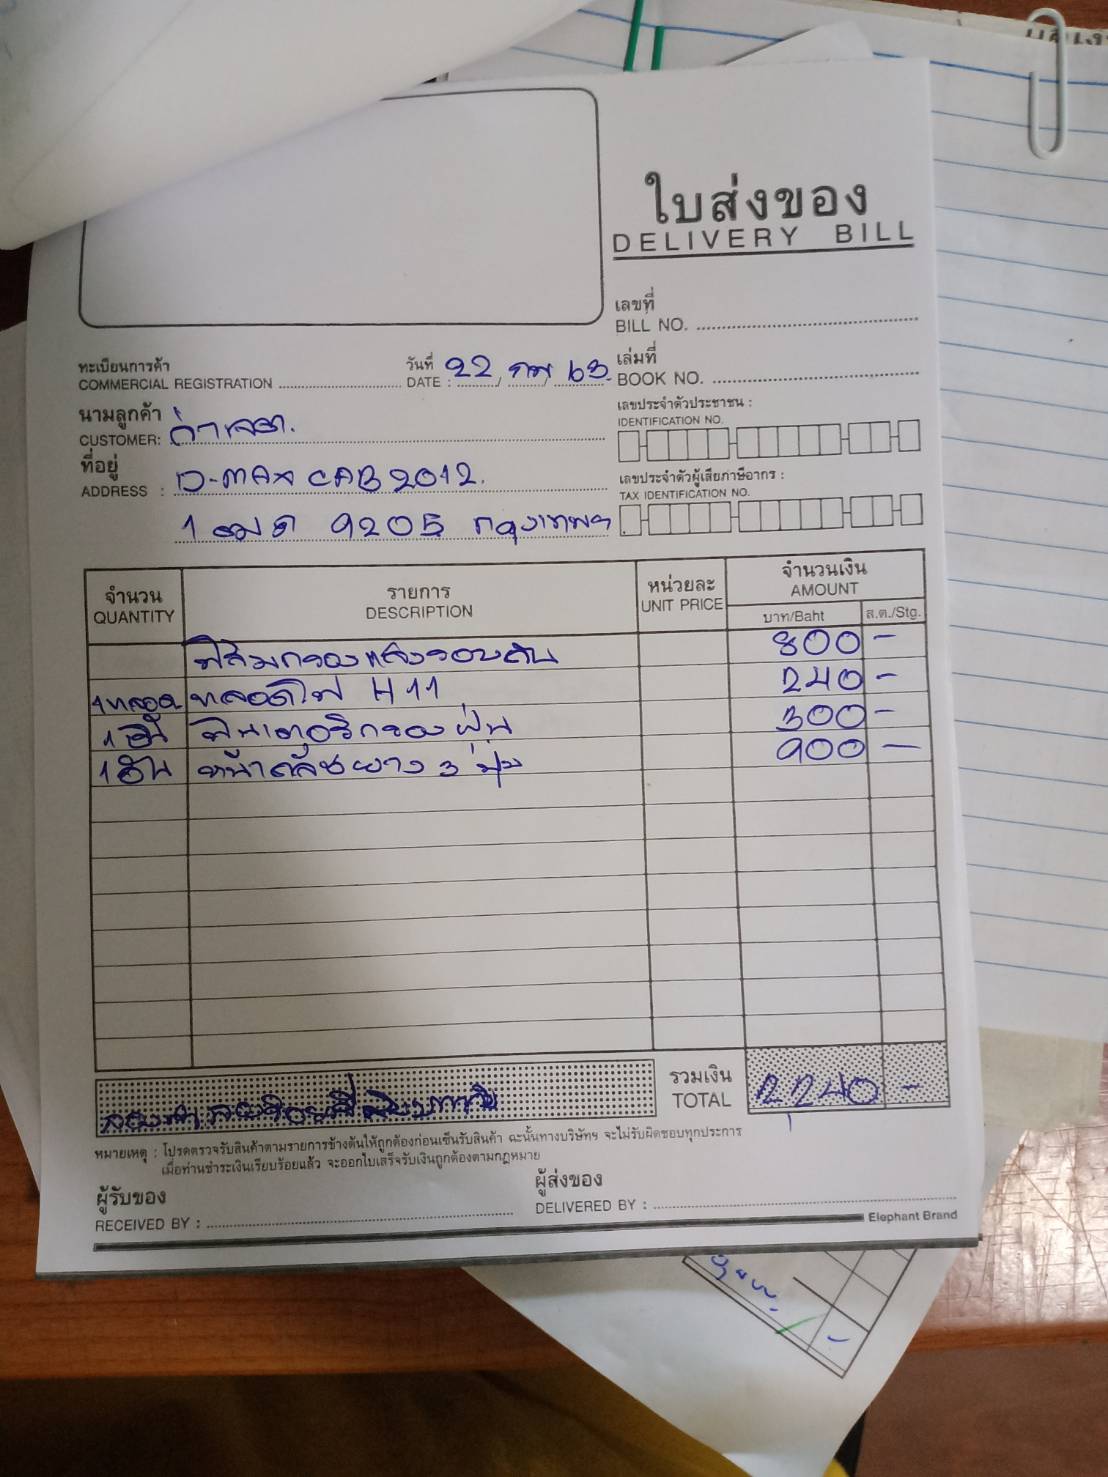 ใบส่งของ
DELIVERY BILL
เลขที่
BILL NO.
ทะเบียนการค้า
COMMERCIAL REGISTRATION
วันที่ 22 กพ 63
DATE : / /
เล่มที่
BOOK NO.
นามลูกค้า
CUSTOMER:
เลขประจำตัวประชาชน :
IDENTIFICATION NO.
ที่อยู่
ADDRESS : D-MAX CAB 2012.
เลขประจำตัวผู้เสียภาษีอากร :
TAX IDENTIFICATION NO.
9205 กรุงเทพฯ
จำนวน
QUANTITY
รายการ
DESCRIPTION
หน่วยละ
UNIT PRICE
จำนวนเงิน
AMOUNT
บาท/Baht ส.ต./Stg.
ฟิล์มกรองแสงรอบคัน 800 -
1 หลอด หลอดไฟ H11 240 -
1 อัน กรองฝุ่น 300 -
1 อัน ยาง 3 ปุ่ม 900 -
รวมเงิน
TOTAL 2240 -
หมายเหตุ : โปรดตรวจรับสินค้าตามรายการข้างต้นให้ถูกต้องก่อนเซ็นรับสินค้า ฉะนั้นทางบริษัทฯ จะไม่รับผิดชอบทุกประการ
เมื่อท่านชำระเงินเรียบร้อยแล้ว จะออกใบเสร็จรับเงินถูกต้องตามกฎหมาย
ผู้รับของ
RECEIVED BY :
ผู้ส่งของ
DELIVERED BY :
Elephant Brand